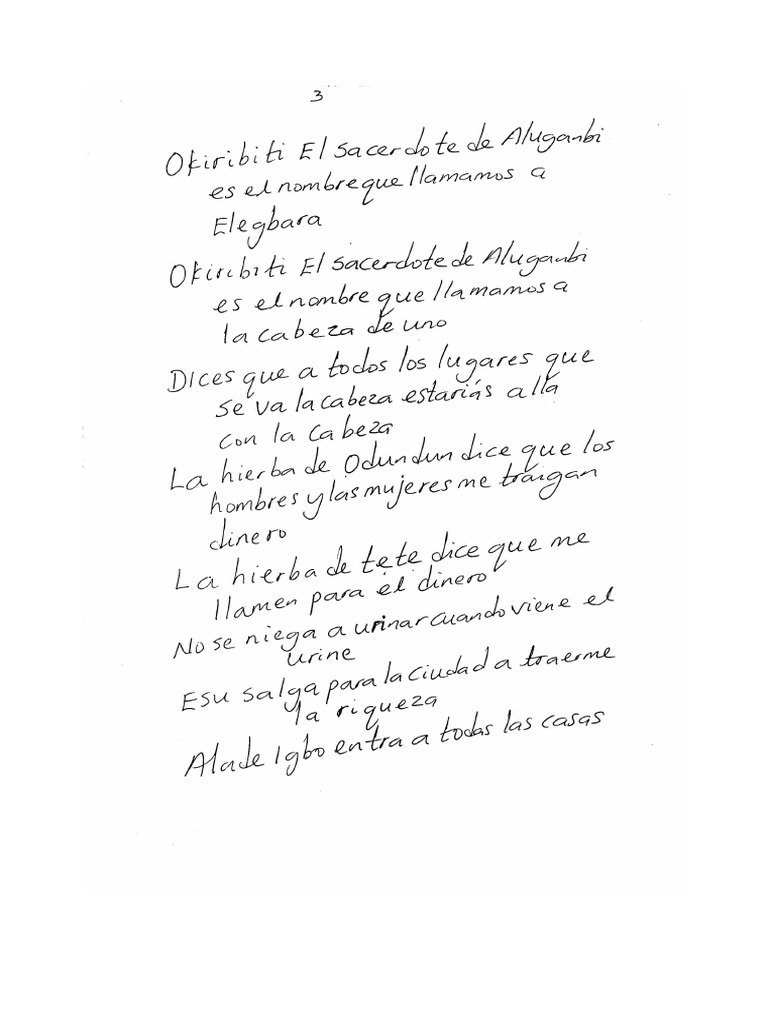 3
Okiribiti El sacerdote de Aluganbi
es el nombre que llamamos a
Elegbara
Okiribiti El sacerdote de Aluganbi
es el nombre que llamamos a
la cabeza de uno
Dices que a todos los lugares que
se va la cabeza estariás allá
con la cabeza
La hierba de Odundun dice que los
hombres y las mujeres me traigan
dinero
La hierba de tete dice que me
llamen para el dinero
No se niega a urinar cuando viene el
urine
Esu salga para la ciudad a traerme
la riqueza
Alade Igbo entra a todas las casas